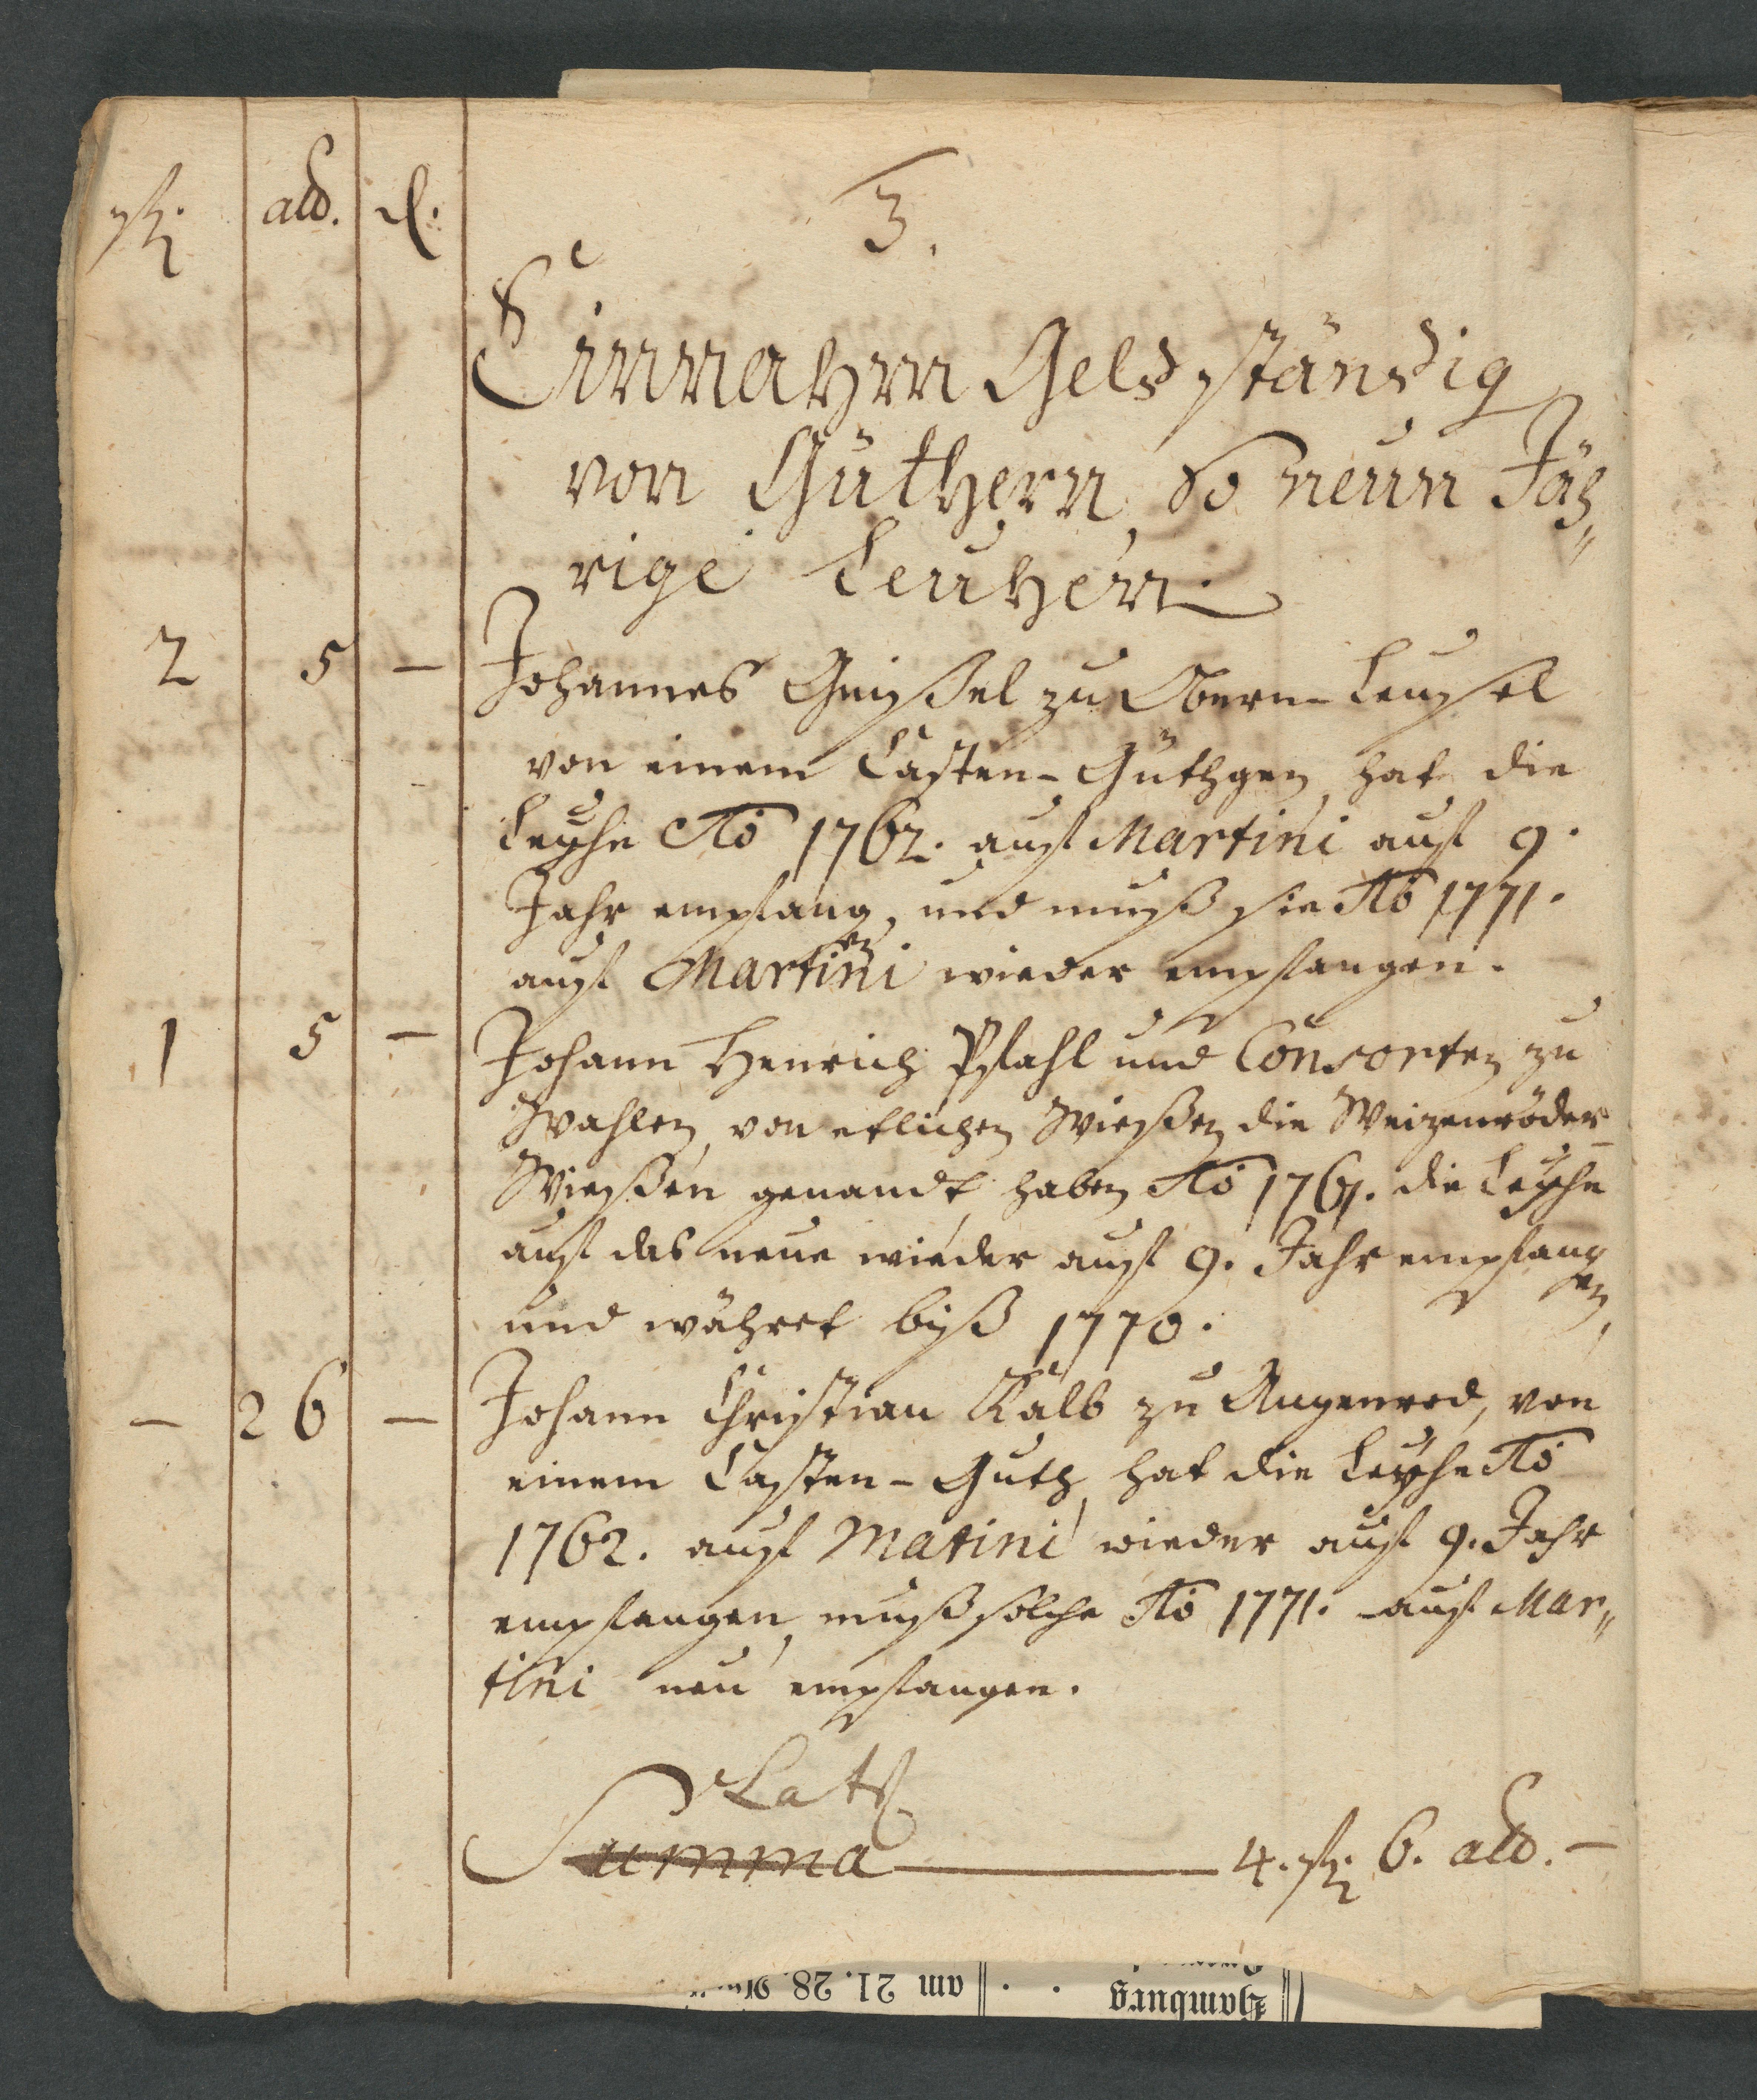 fl. alb. d.
3.
Einnahm Geld ständig
von Güthern, so neun Jäh„
rige Leuhen.
2 5 — Johannes Geissel zu Obern-Leusel
von einem Casten-Güthgen, hat die
Leyhe Ao 1762. auf Martini auf 9.
Jahr empfangen, und muß sie Ao 1771.
auf Martini wieder empfangen.
1 5 — Johann Henrich Pfahl und Consorten zu
Wahlen, von etlichen Wießen die Weizenröder
Wießen genandt, haben Ao 1761. die Leyhe
auf das neue wieder auf 9. Jahr empfangen,
und währet biß 1770.
— 26 — Johann Christian Kalb zu Angenrod, von
einem Casten-Guth, hat die Leyhe Ao
1762. auf Matini wieder auf 9. Jahr
empfangen, muß solche Ao 1771. auf Mar„
tini neu empfangen.
Lats
Summa — 4. fl. 6. alb. —
Hamburg . . am 21. 28.